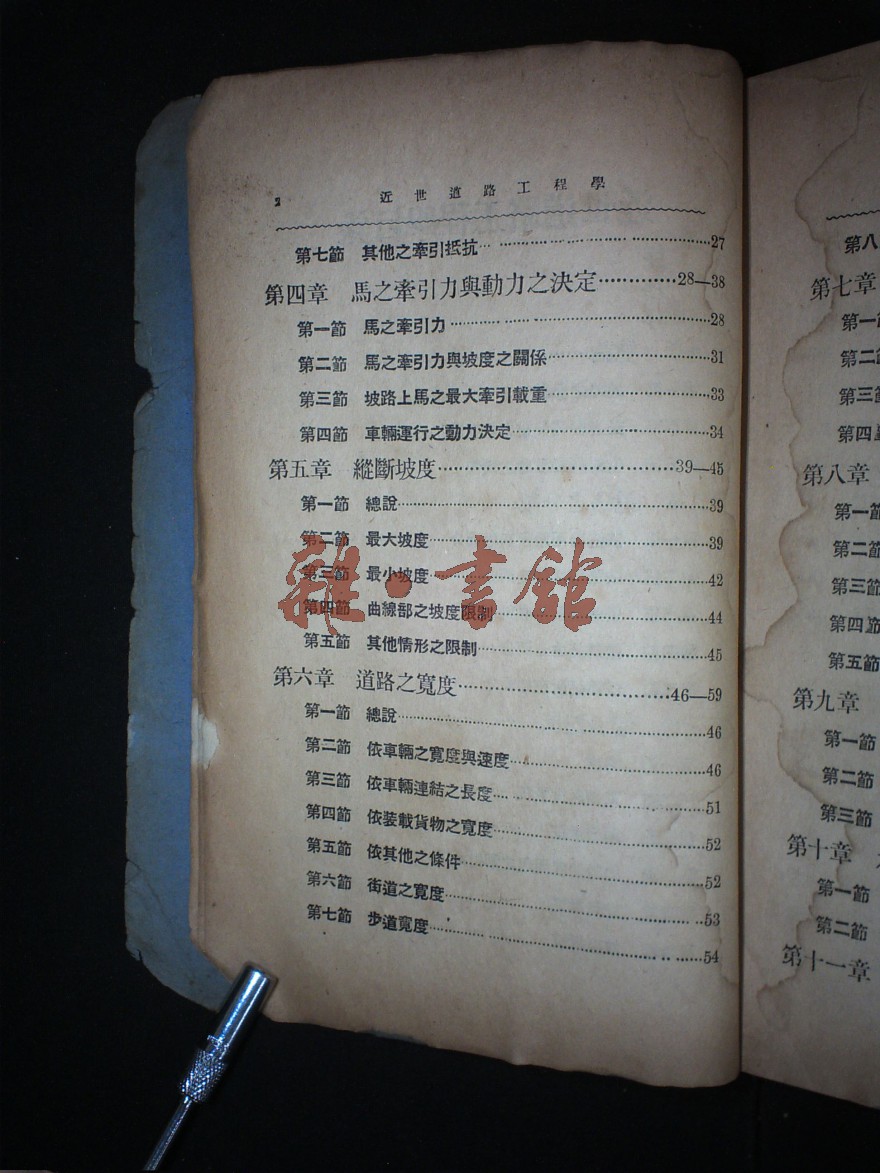 2 近世道路工程學
第七節 其他之牽引抵抗……27
第四章 馬之牽引力與動力之決定……28—38
第一節 馬之牽引力……28
第二節 馬之牽引力與坡度之關係……31
第三節 坡路上馬之最大牽引載重……33
第四節 車輛運行之動力決定……34
第五章 縱斷坡度……39—45
第一節 總說……39
第二節 最大坡度……39
第三節 最小坡度……42
第四節 曲線部之坡度限制……44
第五節 其他情形之限制……45
第六章 道路之寬度……46—59
第一節 總說……46
第二節 依車輛之寬度與速度……46
第三節 依車輛連結之長度……51
第四節 依裝載貨物之寬度……52
第五節 依其他之條件……52
第六節 街道之寬度……53
第七節 步道寬度……54
雜·書館
第八
第七章
第一節
第二節
第三節
第四
第八章
第一節
第二節
第三節
第四節
第五節
第九章
第一節
第二節
第三節
第十章
第一節
第二節
第十一章